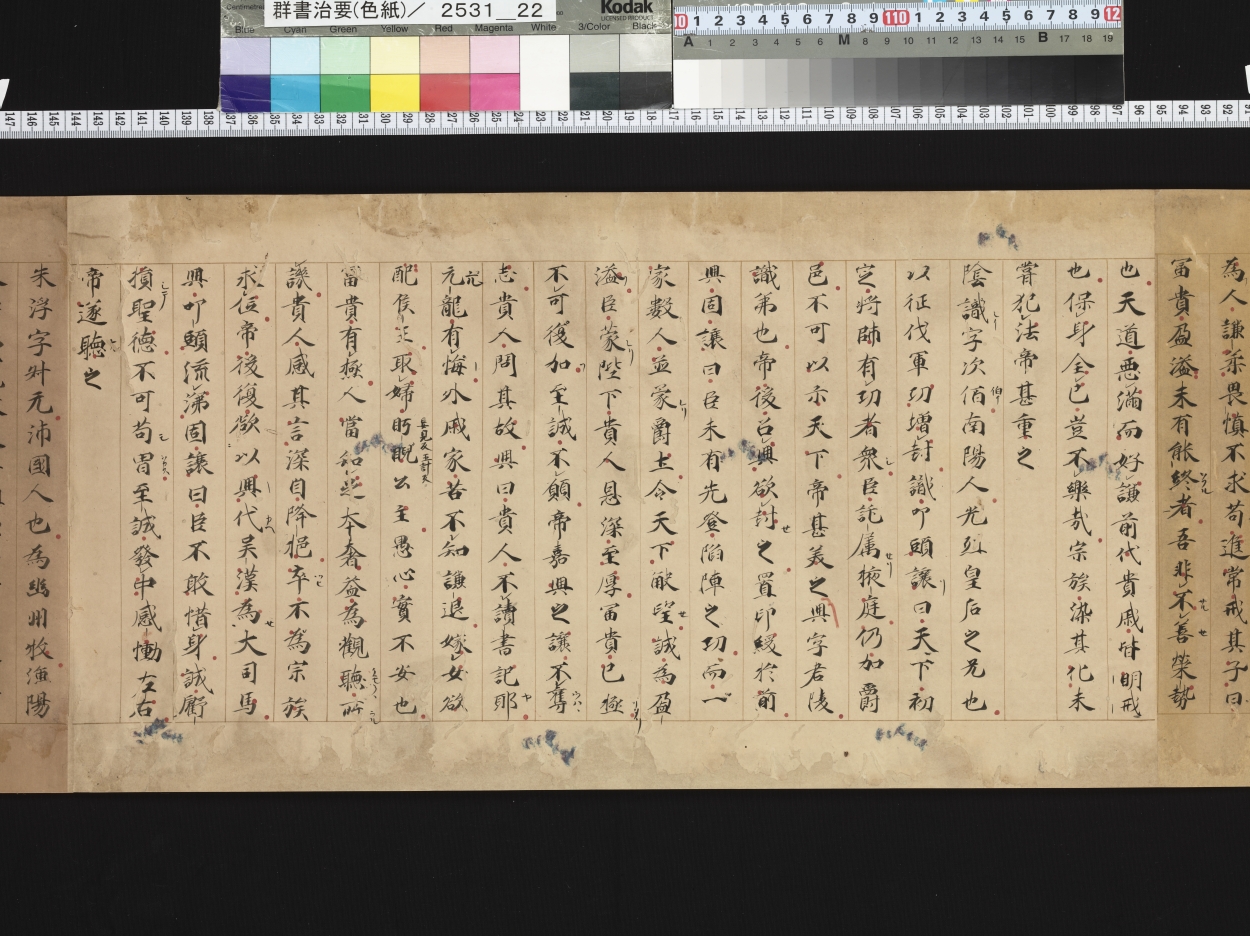 群書治要(色紙)／ 2531__22
Kodak
LICENSED PRODUCT
Blue Cyan Green Yellow Red Magenta White 3/Color Black
為人謙柔畏慎不求苟進常戒其子曰
冨貴盈溢未有能終者吾非不善榮勢
也天道悪滿而好謙前代貴戚皆明戒
也保身全己豈不樂哉宗族染其化未
嘗犯法帝甚重之
陰識字次伯南陽人光烈皇后之兄也
以征伐軍功増封識叩頭讓曰天下初
定將帥有功者衆臣託属掖庭仍加爵
邑不可以示天下帝甚美之興字君陵
識弟也帝後召興欲封之置印綬於前
興固讓曰臣未有先登陥陣之功而一
家數人並蒙爵土令天下觖望誠為盈
溢臣蒙陛下貴人恩深至厚冨貴已極
不可復加至誠不願帝嘉興之讓不奪
志貴人問其故興曰貴人不讀書記耶
亢龍有悔外戚家苦不知謙退嫁女欲
配侯王取婦眄睨公主愚心實不安也
冨貴有極人當知足夸奢益為觀聴所
譏貴人感其言深自降挹卒不為宗族
求位帝後復欲以興代吴漢為大司馬
興叩頭流涕固讓曰臣不敢惜身誠虧
損聖德不可苟冒至誠發中感慟左右
帝遂聴之
朱浮字叔元沛國人也為幽州牧漁陽